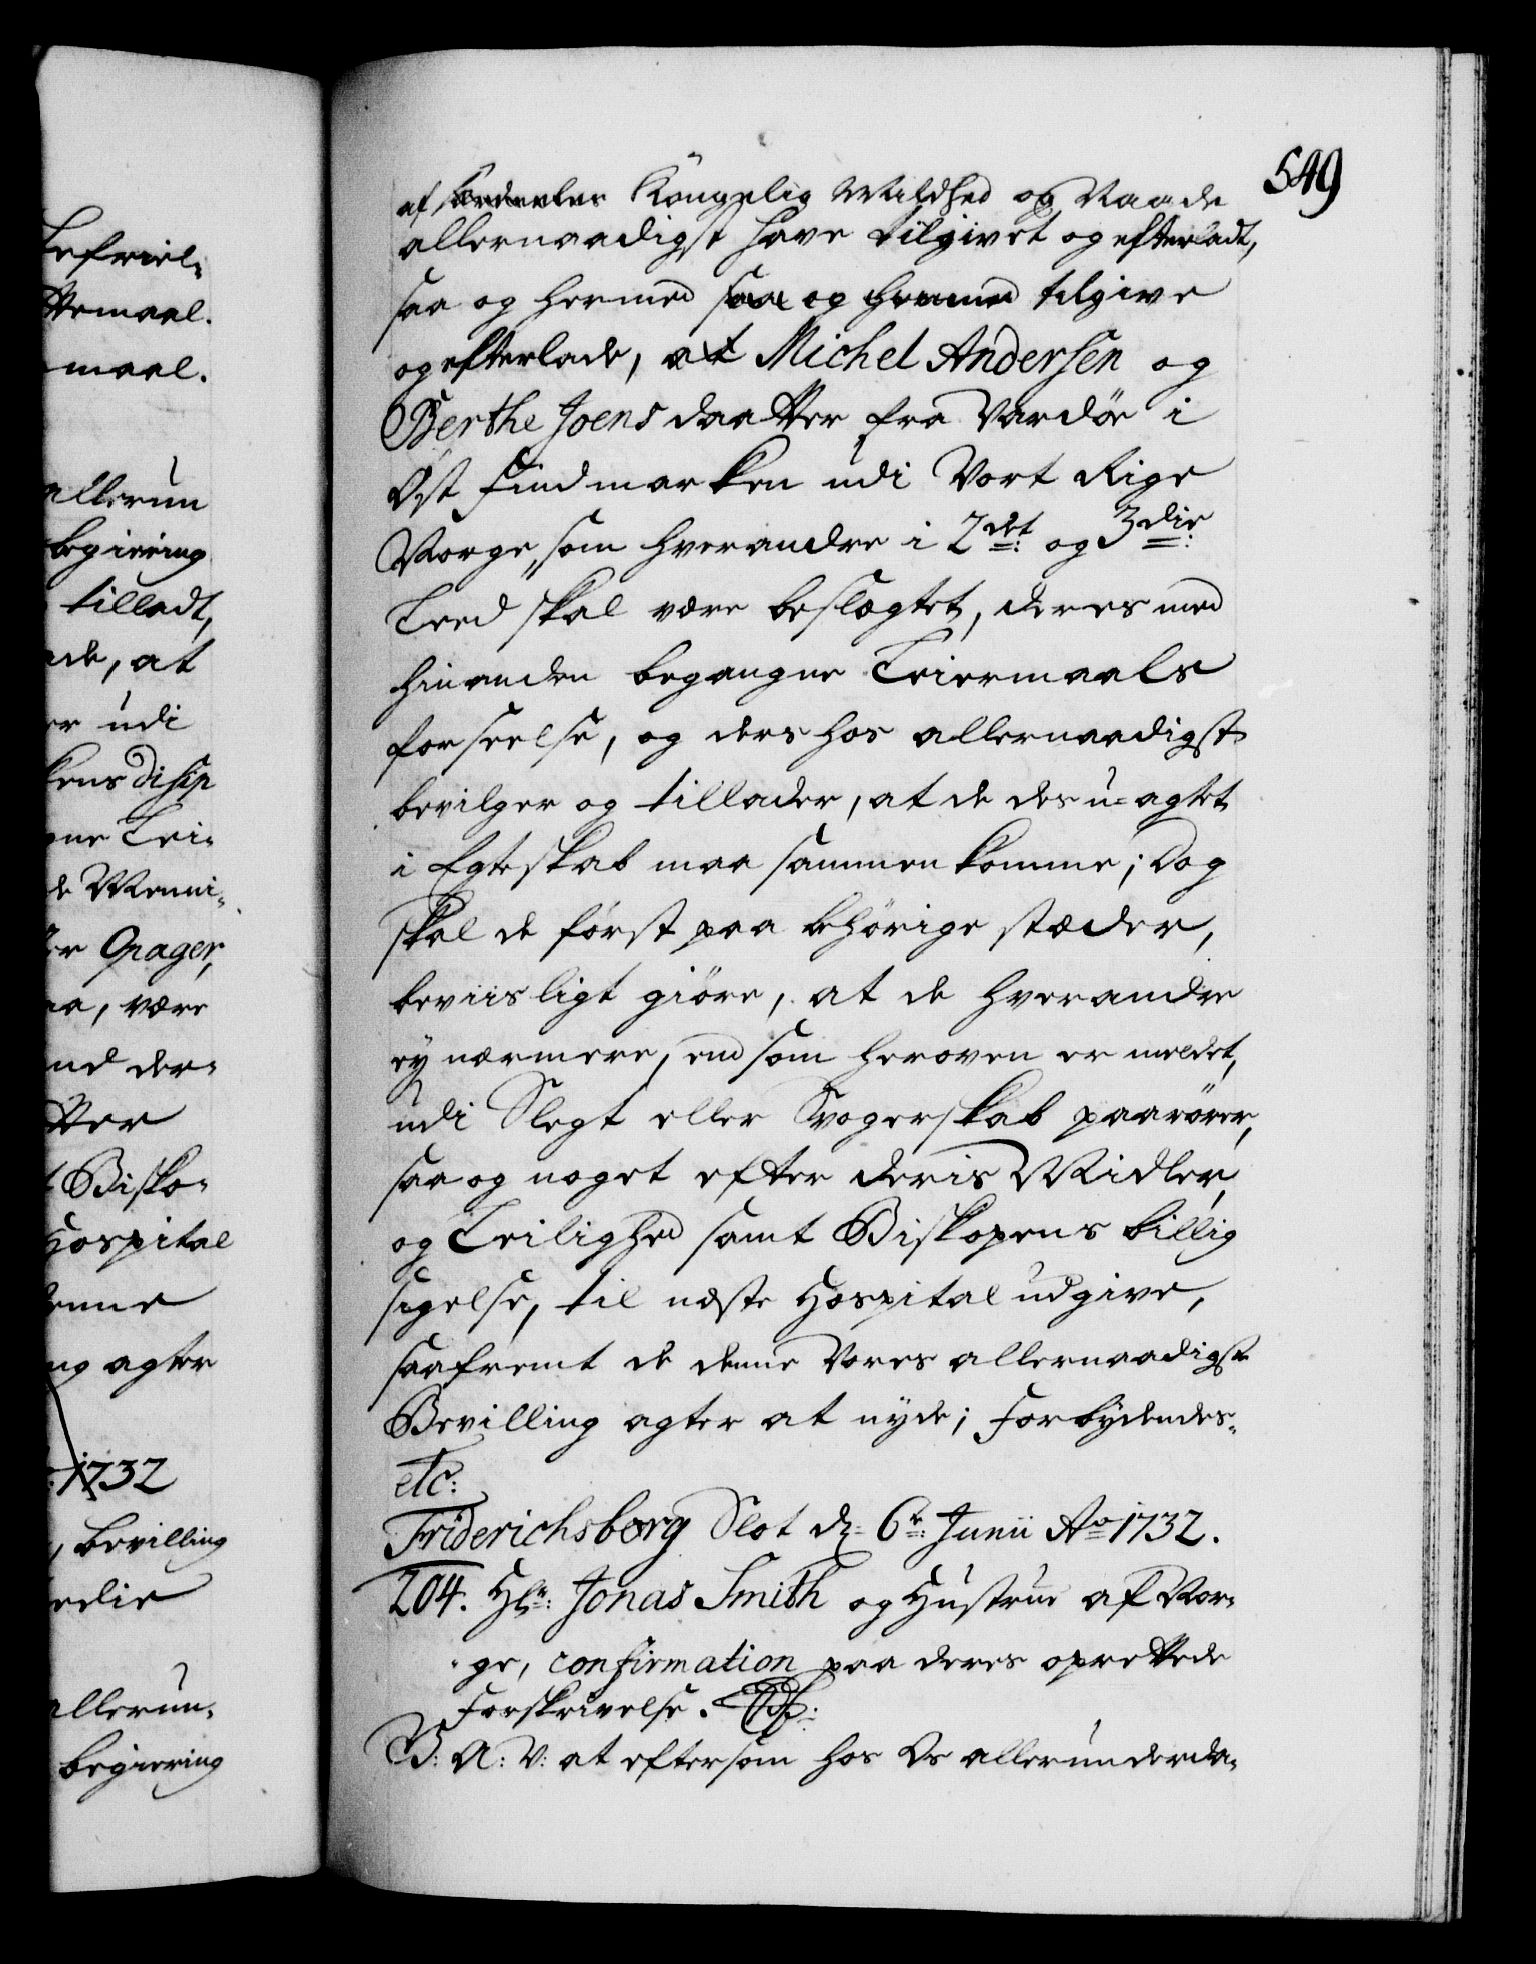 befriel-
ttemaal.
maal.
allerun
begiering
tilladt,
ade, at
er udi
kens disip
gne Lei-
de Menni-
er Qrager,
aa, være
nd der-
tter
t Bisko-
Hospital
denne
ng agter
1732
, bevilling
edie
allerun-
begiering
549
af særdeeles Kongelig Mildhed og Naade
allernaadigst have tilgivet og efterladt,
saa og hermed saa og hermed tilgive
og efterlade, at Michel Andersen og
Berthe Joensdaatter fra Vardøe i
Øst Findmarken udi Vort Rige
Norge, som hverandre i 2det: og 3die:
Leed skal være beslægtet, deres med
hinanden begangne Leiermaals
forseelse, og derhos allernaadigst
bevilger og tillader, at de des u-agtet
i Egteskab maa sammen komme; Dog
skal de først paa behørige stæder,
beviisligt giøre, at de hverandre
ey nærmere, end som heroven er meldet,
udi Slegt eller Svogerskab paarører,
saa og noget efter deris Midler,
og Leilighed samt Biskopens billig
sigelse, til næste Hospital udgive,
saafremt de denne Vores allernaadigst
Bevilling agter at nyde; Forbydendes-
etc:
Friderichsberg Slot d: 6te: Junii Ao 1732.
204. Hr: Jonas Smith og Hustrue af Nor-
-ge, confirmation paa deres oprettede
Forskrivelse.
B: A: V: at eftersom hos Os allerunderda-